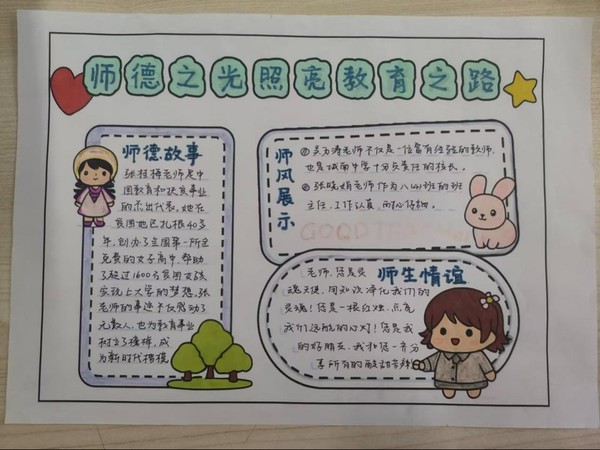 师德之光照亮教育之路
师德故事
张桂梅老师是中
国教育和扶贫事业
的杰出代表。她在
贫困地区扎根40多
年,创办了全国第一所全
免费的女子高中,帮助
了超过1600名贫困女孩
实现上大学的梦想。张
老师的事迹不仅感动了
无数人,也为教育事业
树立了榜样,成
为新时代楷模
师风展示
老师不仅是一位富有经验的教师,
也是城南中学十分负责任的校长。
张晓娟老师作为八(4)班的班
主任,工作认真,耐心仔细。
GOOD
师生情谊
老师,您是灵
魂天使,用知识净化我们的
灵魂!您是一根火炬,点亮
我们远航的心灯!您是我
的好朋友,我和您一齐分
享所有的酸甜苦辣!